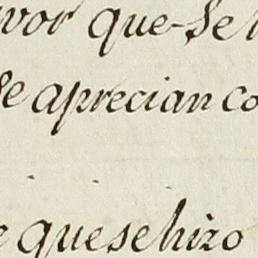 vor que se
se aprecian co
e que se hizo